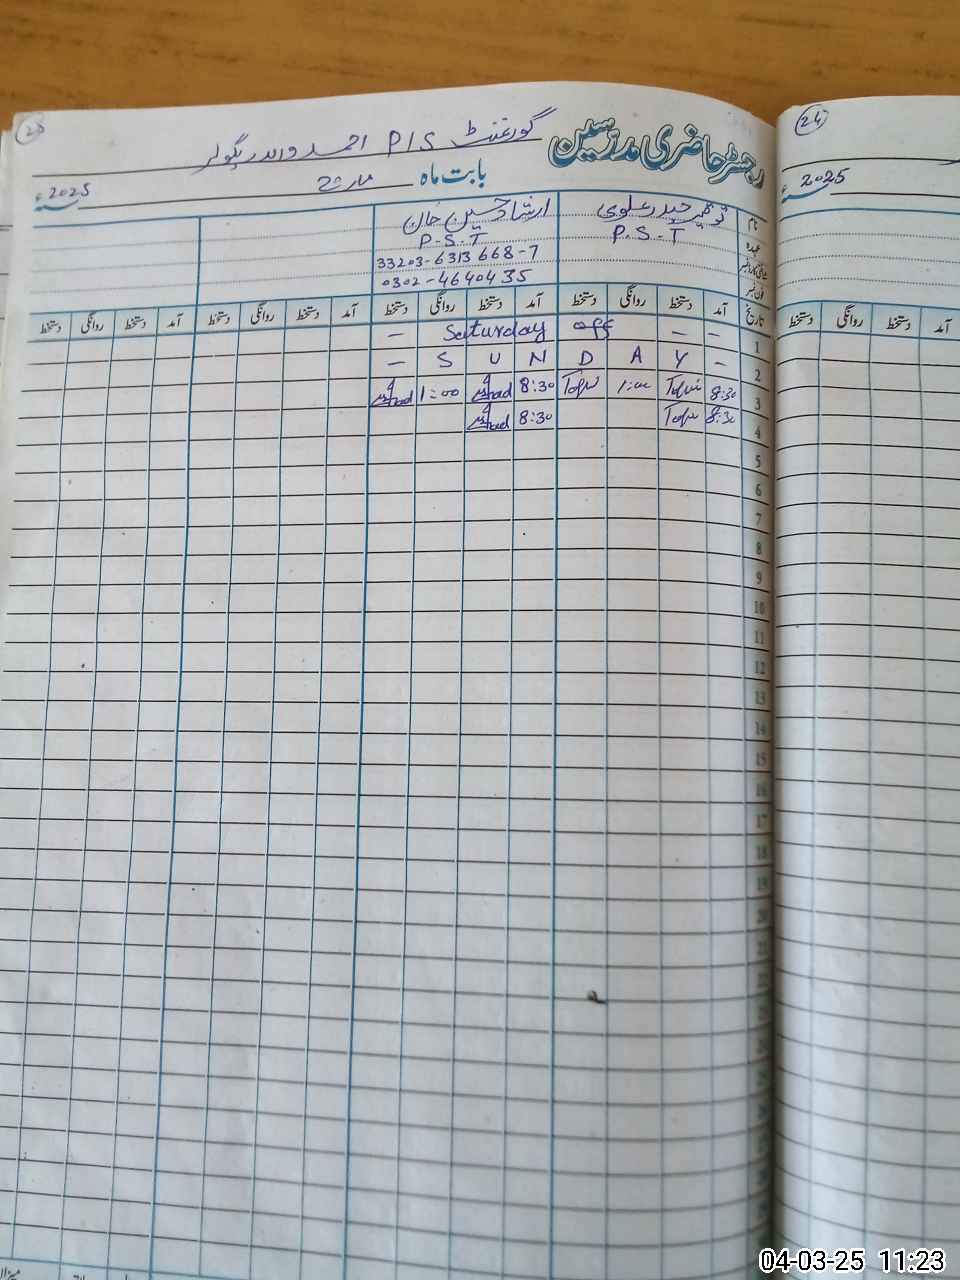 23
گورنمنٹ P/S احمد
رجسٹر حاضری مدرسین
بابت ماہ مارچ
2025ء
نام توقیر حیدر علوی ارشاد حسین خان
عہدہ P.S.T P.S.T
33203-6313668-7
فون نمبر 0302-4640435
تاریخ آمد دستخط روانگی دستخط آمد دستخط روانگی دستخط آمد دستخط روانگی دستخط آمد دستخط روانگی دستخط
1 — Saturday off — —
2 — S U N D A Y —
3 8:30 1:00 8:30 1:00
4 8:30 8:30
5
6
7
8
9
10
11
12
13
14
15
16
17
18
19
20
21
24
2025ء
آمد دستخط روانگی دستخط
04-03-25 11:23